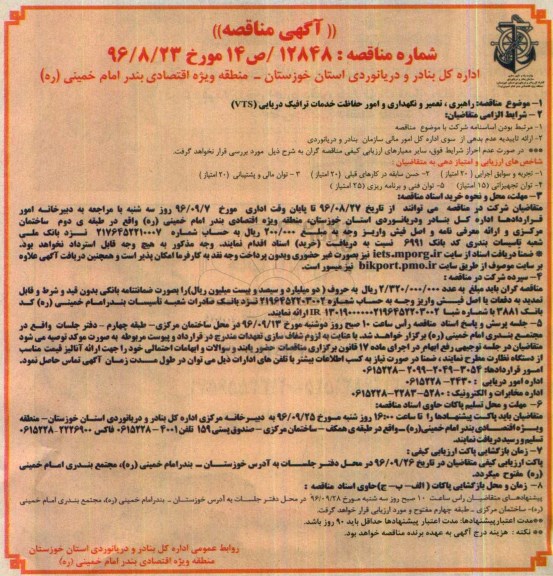 (( آگهی مناقصه))
شماره مناقصه : ۱۲۸۴۸ /ص۱۴ مورخ ۹۶/۸/۲۳
اداره کل بنادر و دریانوردی استان خوزستان - منطقه ویژه اقتصادی بندر امام خمینی (ره)
۱- موضوع مناقصه: راهبری ، تعمیر و نگهداری و امور حفاظت خدمات ترافیک دریایی (VTS)
۲- شرایط الزامی متقاضیان:
۱- مرتبط بودن اساسنامه شرکت با موضوع مناقصه
۲- ارائه تاییدیه عدم بدهی از سوی اداره کل امور مالی سازمان بنادر و دریانوردی
*** در صورت عدم احراز شرایط فوق، سایر معیارهای ارزیابی کیفی مناقصه گران به شرح ذیل مورد بررسی قرار نخواهد گرفت.
شاخص های ارزیابی و امتیاز دهی به متقاضیان :
۱- تجربه و سوابق اجرایی ( ۲۰ امتیاز) ۲- حسن سابقه در کارهای قبلی ( ۲۰ امتیاز) ۳- توان مالی و پشتیبانی (۲۰ امتیاز)
۴- توان تجهیزاتی (۱۵ امتیاز) ۵- توان فنی و برنامه ریزی (۲۵ امتیاز)
۳- مهلت، محل و نحوه خرید اسناد مناقصه:
متقاضیان شرکت در مناقصه می توانند از تاریخ ۹۶/۰۸/۲۷ تا پایان وقت اداری مورخ ۹۶/۰۹/۷ روز سه شنبه با مراجعه به دبیرخانه امور
قراردادها اداره کل بنادر ودریانوردی استان خوزستان، منطقه ویژه اقتصادی بندر امام خمینی (ره) واقع در طبقه ی دوم ساختمان
مرکزی و ارائه معرفی نامه و اصل فیش واریز وجه به مبلغ ۲۰۰/۰۰۰ ریال به حساب شماره ۲۱۷۶۴۵۲۲۱۰۰۰۷ نزد بانک ملی
شعبه تاسیسات بندری کد بانک ۶۹۹۱ نسبت به دریافت (خرید) اسناد اقدام نمایند. وجه مذکور به هیچ وجه قابل استرداد نخواهد بود.
* ضمنا دریافت اسناد از سایت iets.mporg.ir نیز بصورت غیر حضوری وبدون پرداخت وجه نقد به کارفرما امکان پذیر است و همچنین دریافت آگهی علاوه
بر سایت موصوف از طریق سایت bikport.pmo.ir نیز میسور است.
۴- سپرده شرکت در مناقصه :
مناقصه گران باید مبلغ به عدد ۲/۳۲۰/۰۰۰/۰۰۰ ریال به حروف ( دو میلیارد و سیصد و بیست میلیون ریال)را بصورت ضمانتنامه بانکی بدون قید و شرط و قابل
تمدید به دفعات یا اصل فیش واریز وجه به حساب شماره ۲۱۹۶۴۵۲۲۰۳۰۰۲ نزد بانک صادرات شعبه تأسیسات بندرامام خمینی (ره) کد
بانک ۳۸۸۱ با شماره شبا IR ۱۳۰۱۹۰۰۰۰۰۰۲۱۹۶۴۵۲۲۰۳۰۰۲ ارائه نمایند.
۵- جلسه پرسش و پاسخ اسناد مناقصه رأس ساعت ۱۰ صبح روز دوشنبه مورخ ۹۶/۰۹/۱۳ در محل ساختمان مرکزی- طبقه چهارم - دفتر جلسات واقع در
مجتمع بندری امام خمینی (ره) برگزار خواهد شد. با عنایت به لزوم شفاف سازی تعهدات مندرج در قرارداد و پیوست مربوطه به صورت موکد توصیه می شود
متقاضیان در جلسه توجیهی رفع ابهام در اجرای ماده ۱۷ قانون برگزاری مناقصات، حضور یابند و سوالات و ابهامات احتمالی خود را جهت ارائه آنالیز قیمت مناسب
از دستگاه نظارت مطرح نمایند ، ضمنا در صورت نیاز به کسب اطلاعات بیشتر با تلفن های ادارات ذیل می توان در طول مدت زمان آگهی تماس حاصل نمود.
امور قراردادها: ۳۰۵۴-۲۰۴۹-۲۰۹۹-۰۶۱۵۲۲۸
اداره امور دریایی : ۲۴۳۰-۰۶۱۵۲۲۸
اداره مخابرات و الکترونیک : ۵۲۸۰-۲۲۸۳-۰۶۱۵۲۲۸
۶- مهلت و محل تسلیم پاکات حاوی اسناد مناقصه:
متقاضیان باید پاکت پیشنهادها را تا ساعت ۱۶:۰۰ روز شنبه مورخ ۹۶/۰۹/۲۵ به دبیرخانه مرکزی اداره کل بنادر و دریانوردی استان خوزستان- منطقه
ویژه اقتصادی بندر امام خمینی (ره) - واقع در طبقه ی همکف - ساختمان مرکزی - صندوق پستی ۱۵۹ تلفن ۴۰۰۱-۰۶۱۵۲۲۸ فاکس ۲۲۲۶۹۰۰-۰۶۱۵۲۲۸
تسلیم و رسید دریافت نمایند.
۷- زمان بازگشایی پاکت ارزیابی کیفی :
پاکت ارزیابی کیفی متقاضیان در تاریخ ۹۶/۰۹/۲۶ در محل دفتر جلسات به آدرس خوزستان - بندرامام خمینی (ره)، مجتمع بندری امام خمینی
(ره) مفتوح میگردد.
۸- زمان و محل بازگشایی پاکات ( الف - ب - ج)حاوی اسناد مناقصه :
پیشنهادهای متقاضیان راس ساعت ۱۰ صبح روز سه شنبه مورخ ۹۶/۰۹/۲۸ در محل دفتر جلسات به آدرس خوزستان - بندرامام خمینی (ره)، مجتمع بندری امام خمینی
(ره)- ساختمان مرکزی - طبقه چهارم مفتوح و مورد ارزیابی قرار خواهد گرفت.
**مدت اعتبار پیشنهادها: مدت اعتبار پیشنهادها حداقل باید ۹۰ روز باشد.
** نکته : هزینه درج آگهی به عهده برنده مناقصه خواهد بود.
روابط عمومی اداره کل بنادر و دریانوردی استان خوزستان
منطقه ویژه اقتصادی بندر امام خمینی (ره)